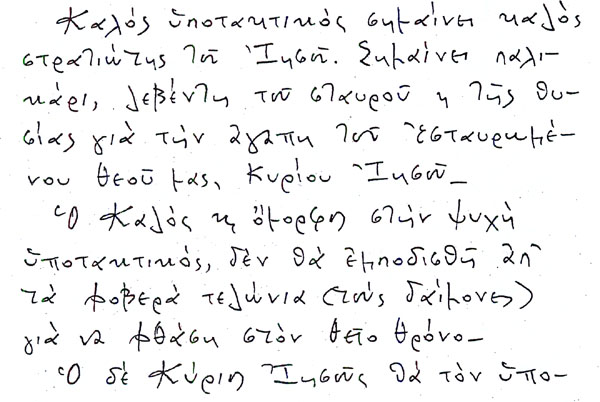 Καλός ὑποτακτικός σημαίνει καλός
στρατιώτης τοῦ Ἰησοῦ. Σημαίνει παλι-
κάρι, λεβέντη τοῦ σταυροῦ κ τῆς θυ-
σίας γιὰ τὴν ἀγάπη τοῦ Ἐσταυρωμέ-
νου Θεοῦ μας, Κυρίου Ἰησοῦ_
Ὁ Καλός κ ὄμορφη στὴν ψυχὴ
ὑποτακτικός, δὲν θὰ ἐμποδισθῆ ἀπ
τὰ φοβερὰ τελώνια (τοὺς δαίμονες)
γιὰ νὰ φθάση στὸν θεῖο θρόνο_
Ὁ δὲ Κύριος Ἰησοῦς θὰ τὸν ὑπο-